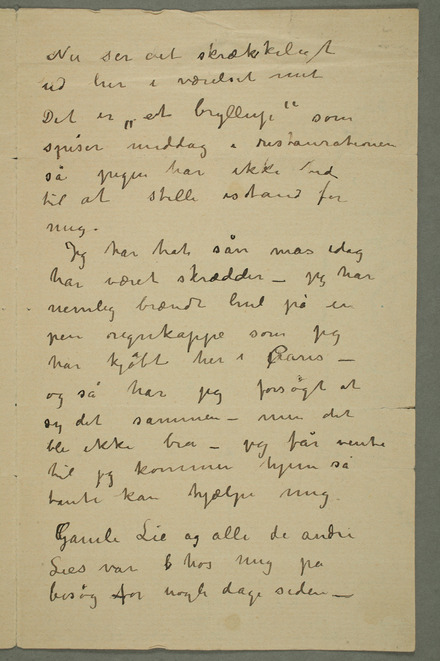 Nu ser det skrækkeligt
ud her i værelset mit
Det er „et bryllup" som
spiser middag i restaurationen
så pigen har ikke tid
til at stille istand for
mig.
Jeg har hat sån mas idag
har været skrædder – jeg har
nemlig brændt hul på en
pen regnkappe som jeg
har kjøbt her i Paris –
og så har jeg forsøgt at
sy det sammen – men det
ble ikke bra – jeg får vente
til jeg kommer hjem så
tante kan hjælpe mig.
Gamle Lie og alle de andre
Lies var hos mig på
besøg for nogle dage siden –